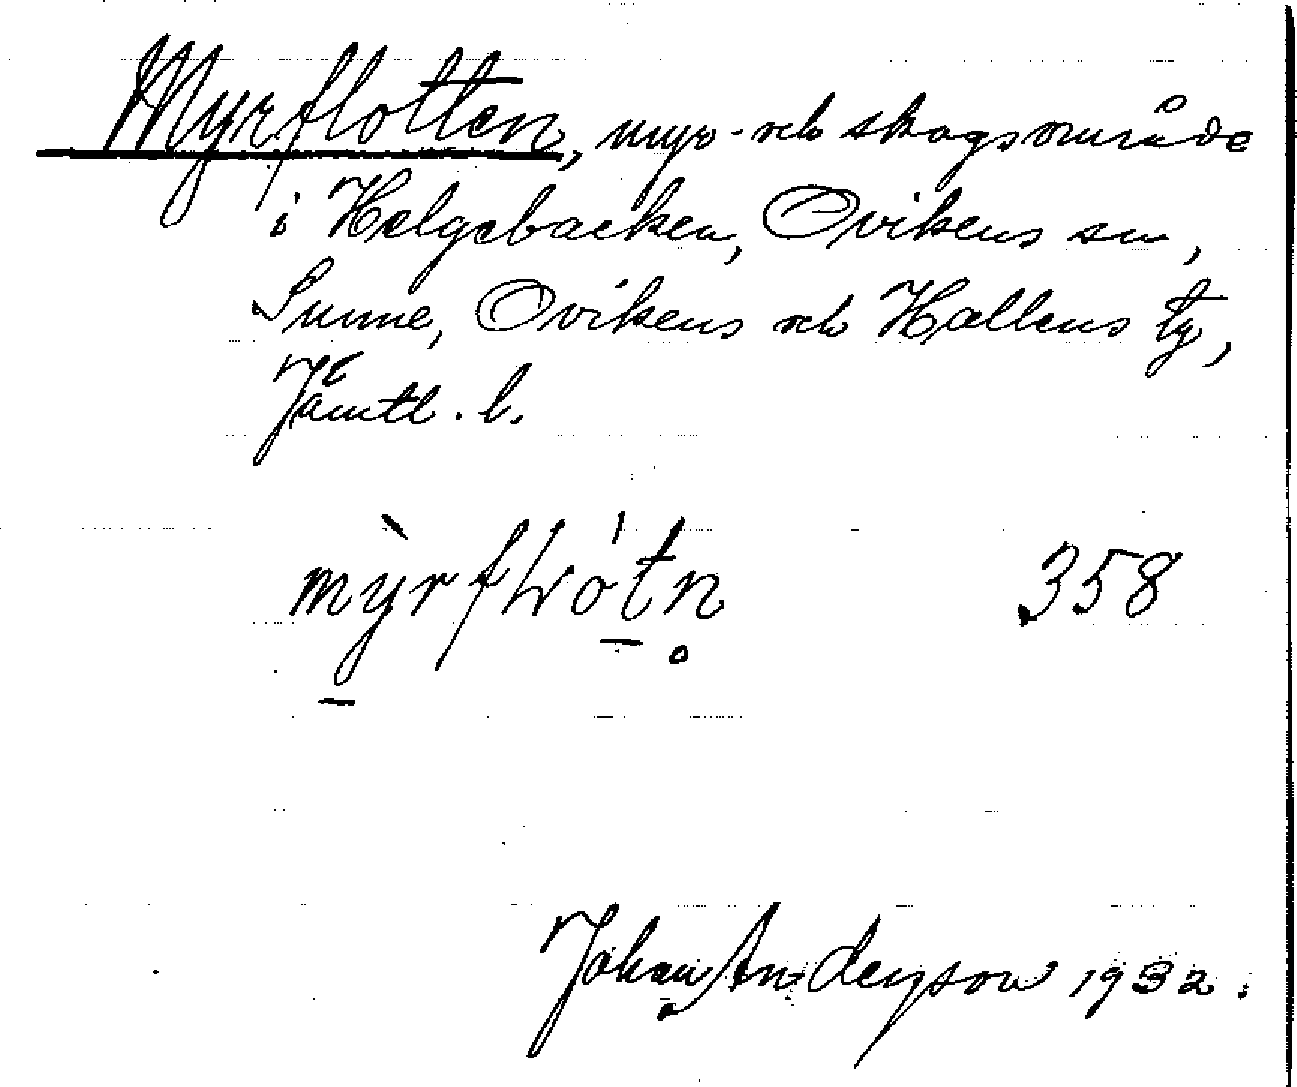 Myrflotten, myr- och skogsområde
i Helgebacken, Ovikens sn,
Sunne, Ovikens och Hallens tg,
Jämtl. l.
358
Johan Anderson 1932.